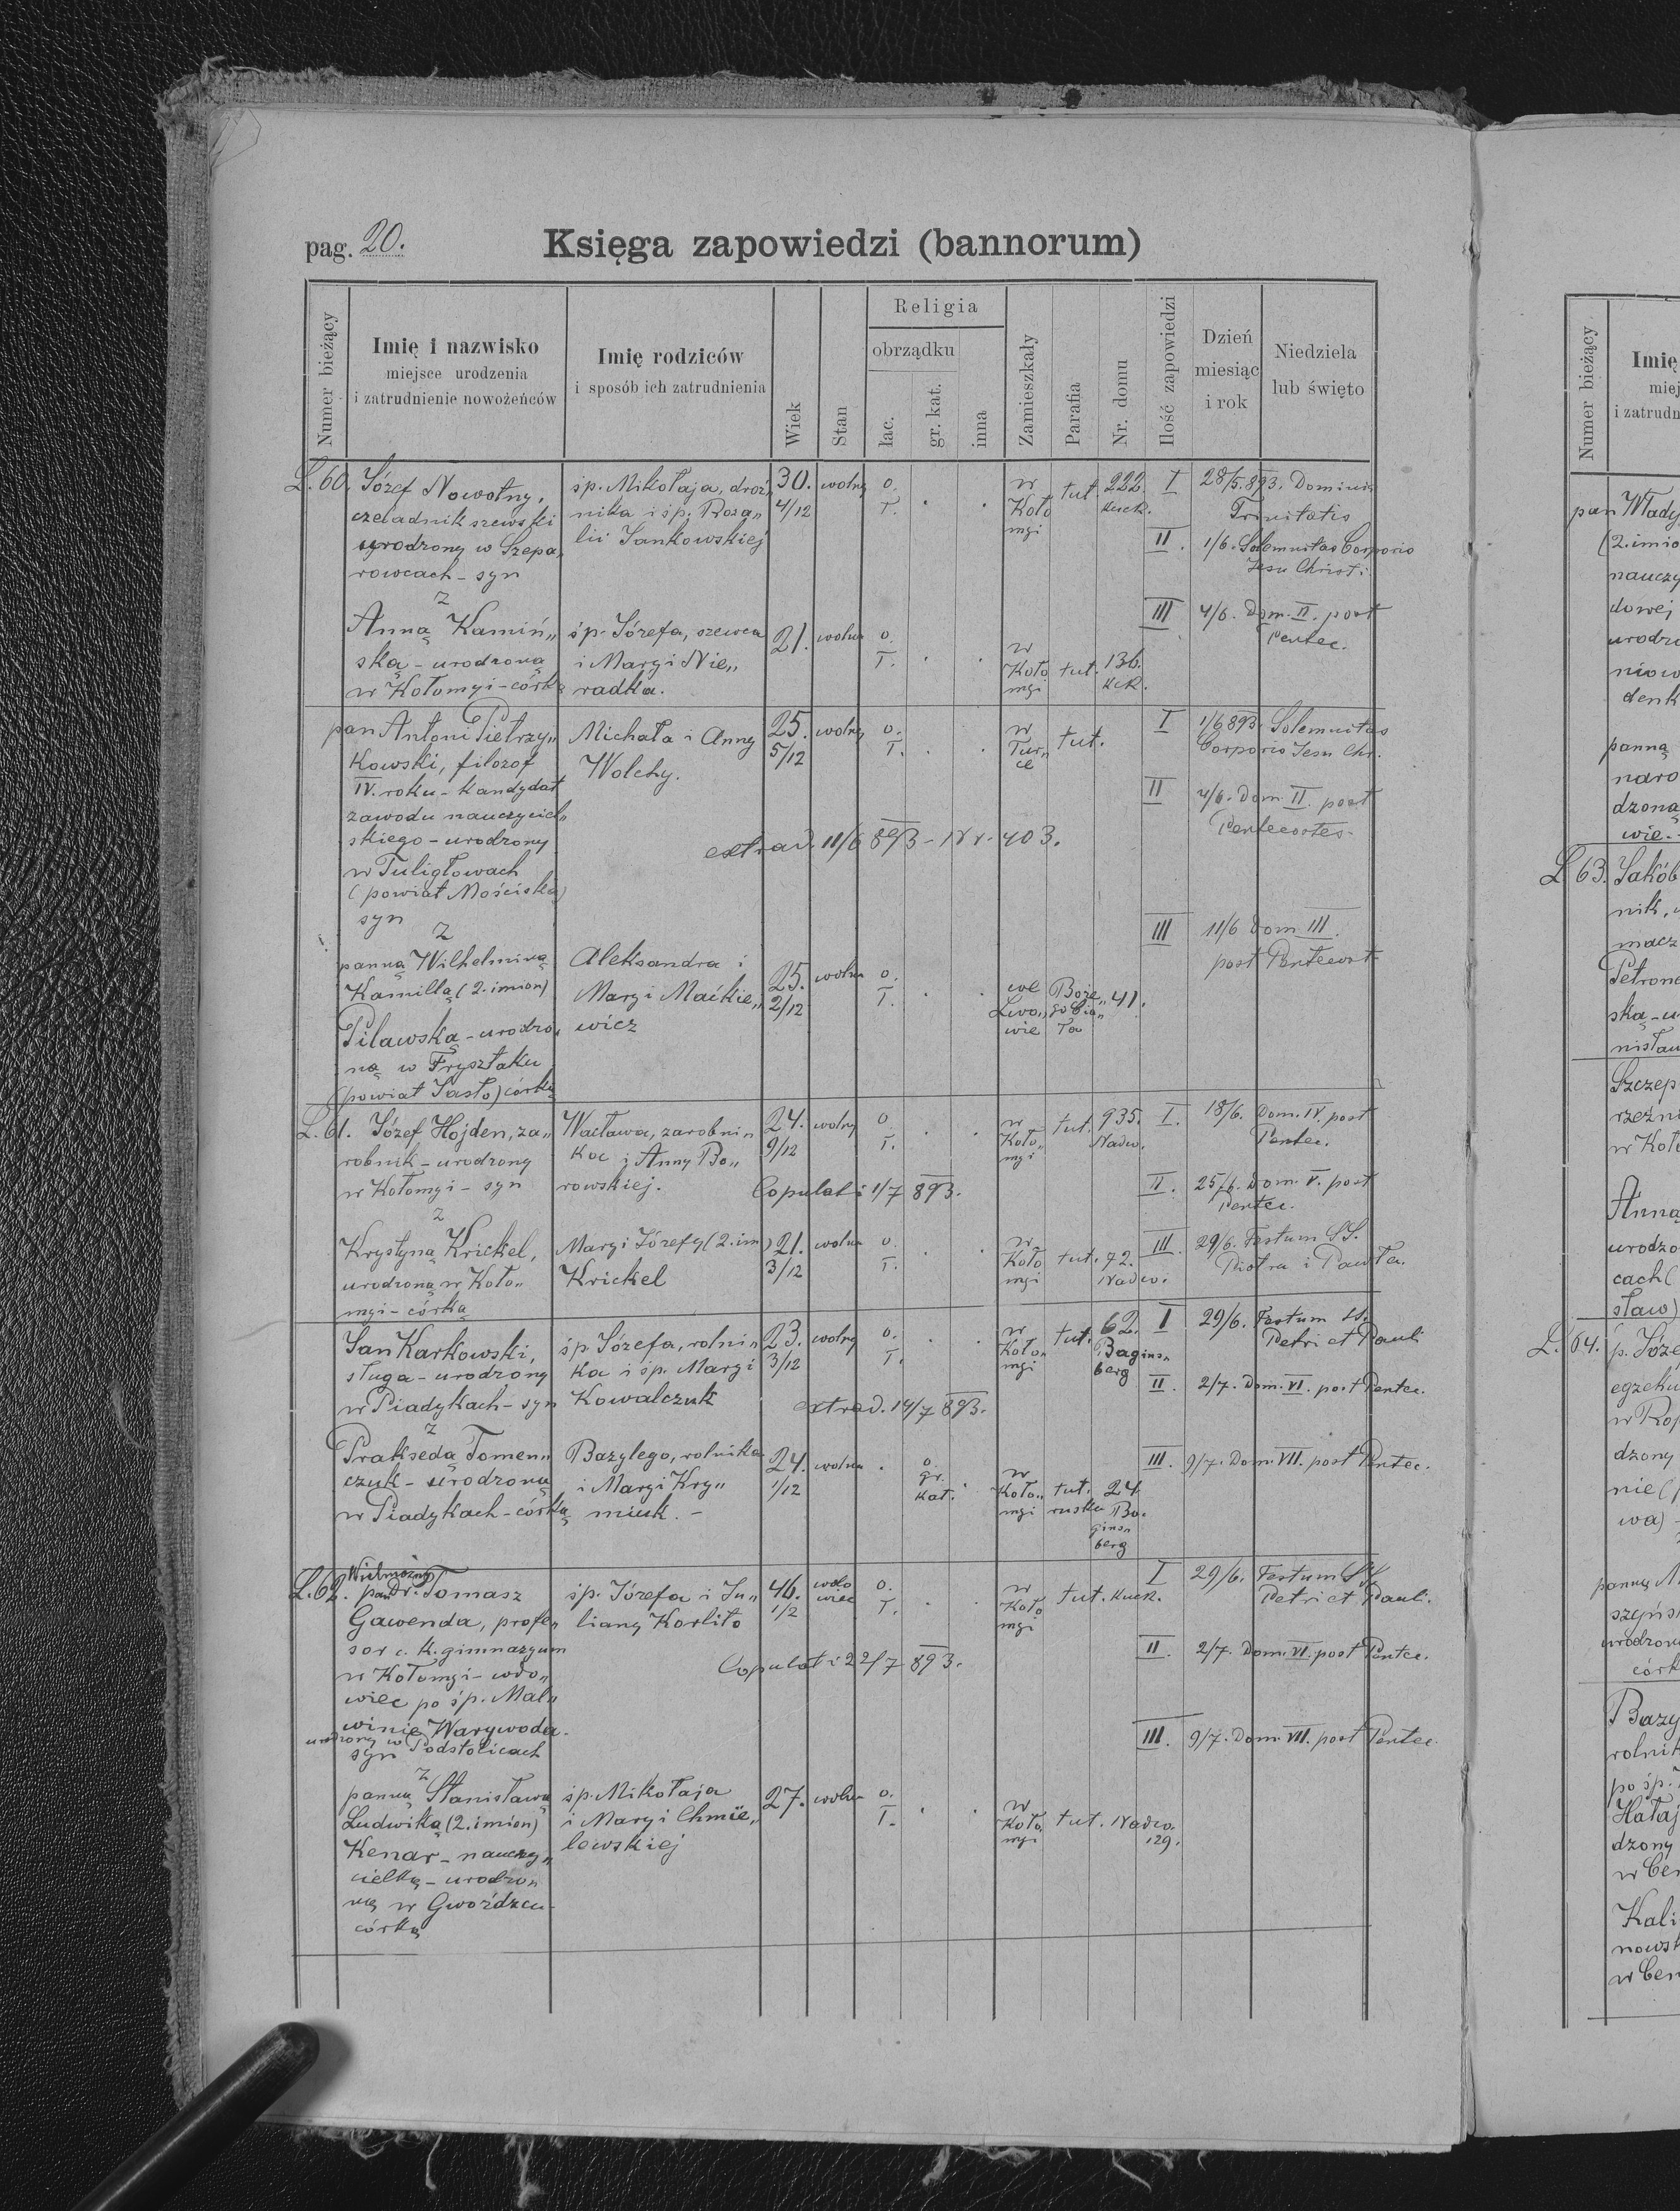 pag. 20.
Księga zapowiedzi (bannorum)
Numer bieżący
Imię i nazwisko
miejsce urodzenia
i zatrudnienie nowożeńców
Imię rodziców
i sposób ich zatrudnienia
Wiek
Stan
Religia
obrządku
łac.
gr. kat.
inna
Zamieszkały
Parafia
Nr. domu
Ilość zapowiedzi
Dzień
miesiąc
i rok
Niedziela
lub święto
L. 60. Józef Nowotny,
czeladnik szewski
urodzony w Szepa„
rowcach - syn
z
Anną Kamiń„
ską - urodzoną
w Kołomyi - córką
śp. Mikołaja, droż„
nika i śp. Roza„
lii Jankowskiej
30. wolny o.
4/12 ł.
w
Koło
myi
tut. 222
kuck.
I 28/5. 893. Dominica
Trinitatis
II. 1/6. Solemnitas Corporis
Jesu Christi.
III 4/6. Dom. II. post
Pentec.
śp. Józefa, szewca
i Maryi Nie„
radka.
21. wolna o.
ł.
w
Koło
myi
tut. 136.
kck.
pan Antoni Pietrzy„
kowski, filozof
IV. roku - kandydat
zawodu nauczyciel„
skiego - urodzony
w Tuligłowach
(powiat Mościska)
syn
z
panną Wilhelminą
Kamillą (2. imion)
Pilawską - urodzo„
ną w Frysztaku
(powiat Jasło) córką
Michała i Anny
Wolchy.
25. wolny o.
5/12 ł.
w
Tur„
ce
tut.
I 1/6 893. Solemnitas
Corporis Jesu Chr.
II 4/6. Dom. II. post
Pentecostes.
extrad. 11/6 893 - Nr. 403.
III 11/6 Dom III.
post Pentecost
Aleksandra i
Maryi Maćkie„
wicz
25. wolna o.
2/12 ł.
we
Lwo„
wie
Boże„
go Cia„
ła
41.
L. 61. Józef Hojden, za„
robnik - urodzony
w Kołomyi - syn
z
Krystyną Krickel,
urodzoną w Koło„
myi - córką
Wacława, zarobni„
ka i Anny Bo„
rowskiej.
24. wolny o
9/12 ł.
w
Koło„
myi
tut. 935.
Nadw.
I. 18/6. Dom. IV post
Pentec.
Copulati 1/7 893.
II. 25/6. Dom. V. post
Pentec.
Maryi Józefy (2. im.)
Krickel
21. wolna o
3/12 ł.
w
Koło
myi
tut. 72.
Nadw.
III. 29/6. Festum SS.
Piotra i Pawła.
Jan Karkowski,
sługa - urodzony
w Piadykach - syn
z
Praksedą Tomen„
czuk - urodzoną
w Piadykach - córką
śp. Józefa, rolni„
ka i śp. Maryi
Kowalczuk
23. wolny o.
3/12 ł.
w
Koło„
myi
tut. 62.
Bagins„
berg
I 29/6. Festum SS.
Petri et Pauli
II. 2/7. Dom. VI. post Pentec.
extrad. 14/7 893.
Bazylego, rolnika
i Maryi Kry„
miuk. -
24. wolna
1/12
o.
gr.
kat.
w
Koło„
myi
tut.
ruska
24
Ba„
gins„
berg
III. 9/7. Dom. VII. post Pentec.
Wielmożny
L. 62. pan Dr. Tomasz
Gawenda, profe„
sor c. k. gimnazyum
w Kołomyi - wdo„
wiec po śp. Mal„
winie Warywoda.
urodzony w Podstolicach
syn
z
panną Stanisławą
Ludwiką (2. imion)
Kenar - nauczy„
cielką - urodzo„
ną w Gwoźdzcu
córką
śp. Józefa i Ju„
lianny Korlito
46. wdo o.
1/2 wiec ł.
w
Koło
myi
tut. kuck.
I 29/6. Festum SS
Petri et Pauli.
Copulati 22/7 893.
II. 2/7. Dom. VI. post Pentec.
III. 9/7. Dom. VII. post Pentec.
śp. Mikołaja
i Maryi Chmie„
lowskiej
27. wolna o.
ł.
w
Koło
myi
tut. Nadw.
129.
Numer bieżący
Imię
miej
i zatrudn
pan Włady
(2. imio
nauczy
dowej
urodzo
niow
denk
panną
naro
dzoną
wie -
L. 63. Jakób
nik, u
macz
Petrone
ską - u
nisław
Szczep
rzeźni
w Koło
Anną
urodzo
cach (
sław)
L. 64. p. Józe
egzeku
w Rop
dzony
nie (p
wa) -
panną M.
szyńs
urodzoną
córk
Bazy
rolnik
po śp.
Hałaj
dzony
w Cen
Kali
nowsk
w Cen